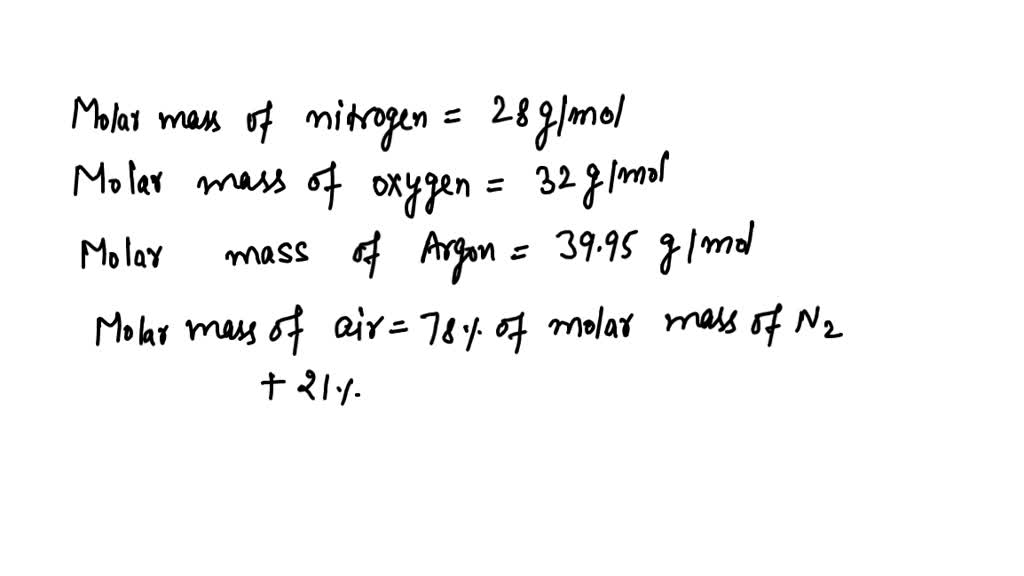 Molar mass of nitrogen = 28 g/mol
Molar mass of oxygen = 32 g/mol
Molar mass of Argon = 39.95 g/mol
Molar mass of air = 78% of molar mass of N2
+ 21%